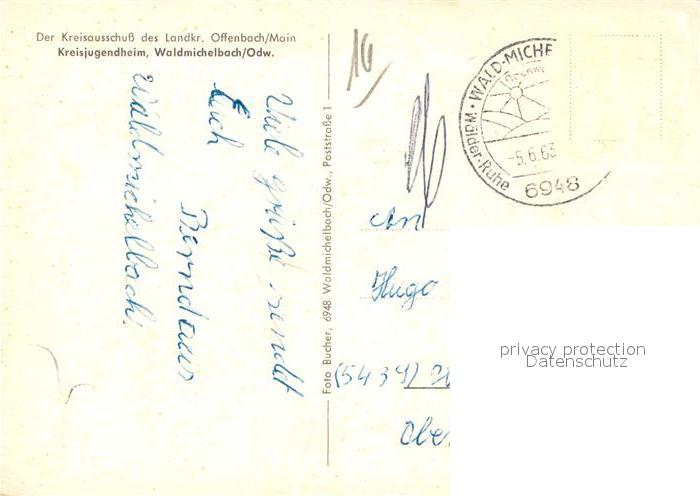 Der Kreisausschuß des Landkr. Offenbach/Main
Kreisjugendheim, Waldmichelbach/Odw.
Viele grüße sendet
Euch
Bernd aus
Waldmichelbach.
Foto Bucher, 6948 Waldmichelbach/Odw., Poststraße 1
16
WALD-MICHE
-5.6.63
6948
Wälder·Ruhe
An
Hugo
(5434)
Ober
privacy protection
Datenschutz